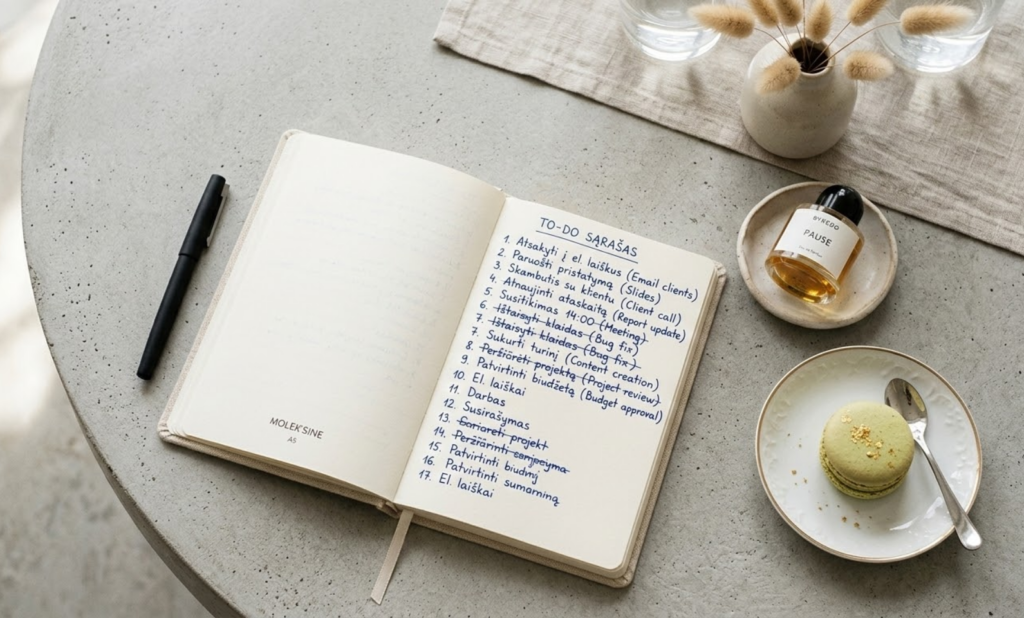 MOLEKSINE
A5
TO-DO SĄRAŠAS
1. Atsakyti į el. laiškus (Email clients)
2. Paruošti pristatymą (Slides)
3. Skambutis su klientu (Client call)
4. Atnaujinti ataskaitą (Report update)
5. Susitikimas 14:00 (Meeting)
6. Ištaisyti klaidas (Bug fix)
7. Ištaisyti klaidas (Bug fix)
7. Sukurti turinį (Content creation)
8. Peržiūrėti projektą (Project review)
9. Patvirtinti biudžetą (Budget approval)
10. El. laiškai
11. Darbas
12. Susirašymas
13. projekt
14.
15. Patvirtinti biudnį
16. Patvirtinti sumarniną
17. El. laiškai
BYREDO
PAUSE